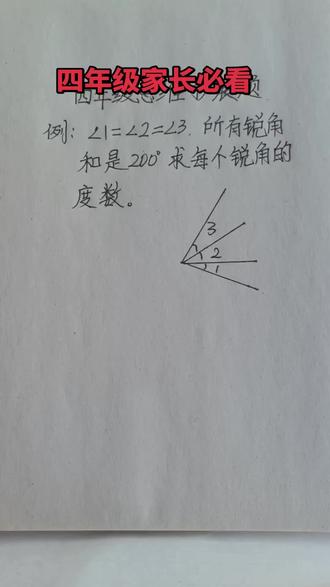 四年级家长必看
四年级思维扩展题
例：∠1=∠2=∠3. 所有锐角
和是200° 求每个锐角的
度数。
3
2
1